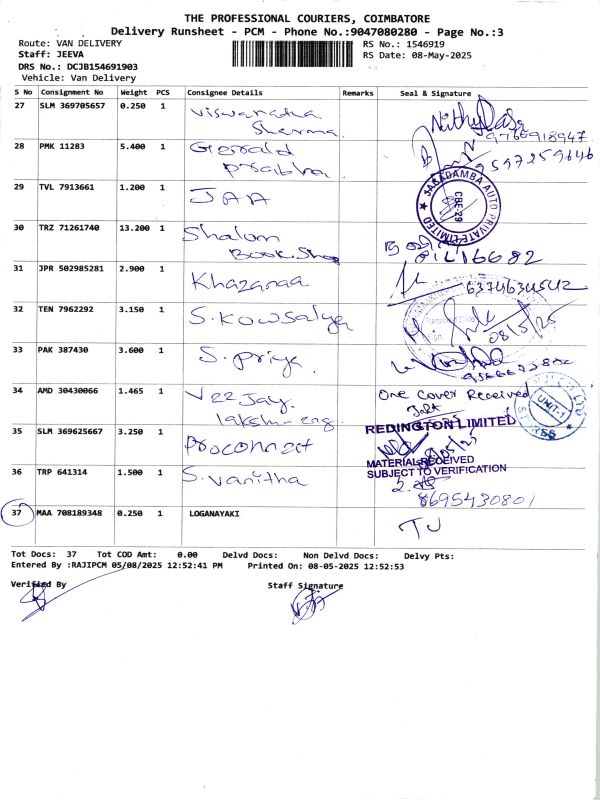 THE PROFESSIONAL COURIERS, COIMBATORE
Delivery Runsheet - PCM - Phone No.:9047080280 - Page No.:3
Route: VAN DELIVERY
RS No.: 1546919
Staff: JEEVA
RS Date: 08-May-2025
DRS No.: DCJB154691903
Vehicle: Van Delivery
S No Consignment No Weight PCS Consignee Details Remarks Seal & Signature
27 SLM 369705657 0.250 1 Sharma
9765918947
28 PMK 11283 5.400 1 Gerald
Prabha
9597259646
29 TVL 7913661 1.200 1 JAA
JAGADAMBA AUTO PRIVATE LIMITED
CBE-29
30 TRZ 71261740 13.200 1 Shalom
Book Shop
31 JPR 502985281 2.900 1 Khazanaa
32 TEN 7962292 3.150 1 S. Kowsalya
08/5/25
33 PAK 387430 3.600 1 S. Priya
34 AMD 30430066 1.465 1 V22 Jay.
lakshmi eng
One Cover Received
UNIT-1
STORES
35 SLM 369625667 3.250 1 Proconnect
REDINGTON LIMITED
MATERIAL RECEIVED
SUBJECT TO VERIFICATION
36 TRP 641314 1.500 1 S. Vanitha
8695430801
37 MAA 708189348 0.250 1 LOGANAYAKI
Tot Docs: 37 Tot COD Amt: 0.00 Delvd Docs: Non Delvd Docs: Delvy Pts:
Entered By :RAJIPCM 05/08/2025 12:52:41 PM Printed On: 08-05-2025 12:52:53
Verified By
Staff Signature